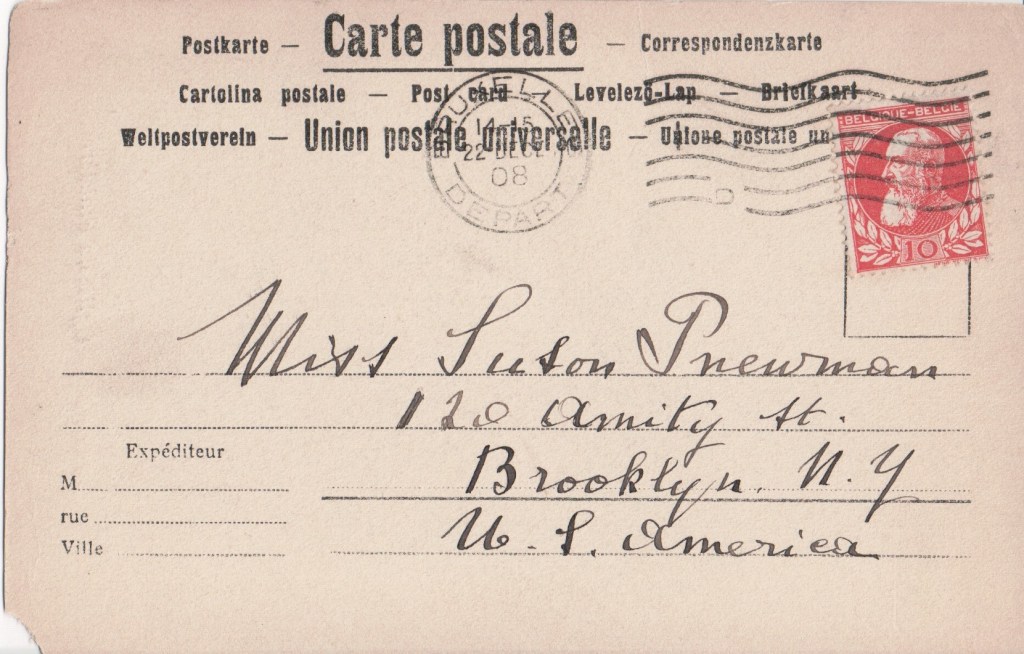 Postkarte — Carte postale — Correspondenzkarte
Cartolina postale — Post card — Levelezö-Lap — Briefkaart
Weltpostverein — Union postale universelle — Unione postale un
BRUXELLES
14-15
22 DECE
08
DEPART
BELGIQUE-BELGIE
10
Miss Suson Pnewman
120 Amity St.
Brooklyn. N. Y
U. S. America
Expéditeur
M
rue
Ville